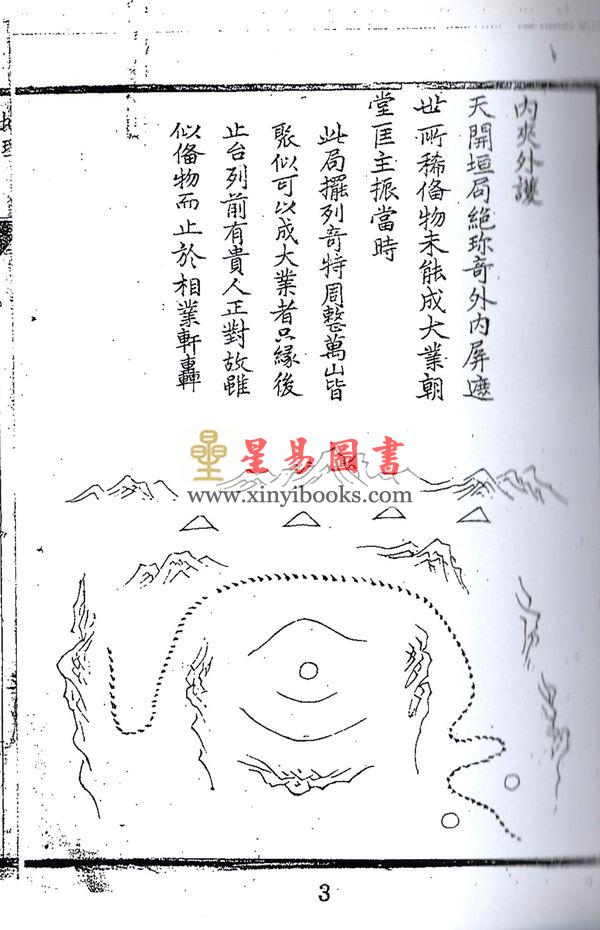 內夾外護
天開垣局絕珎竒外內屏遮
世所稀俻物未能成大業朝
堂匡主振當時
此局擺列竒特周整萬山皆
聚似可以成大業者只緣後
止台列前有貴人正對故雖
似俻物而止於相業軒轟
地理
星易圖書
www.xinyibooks.com
3